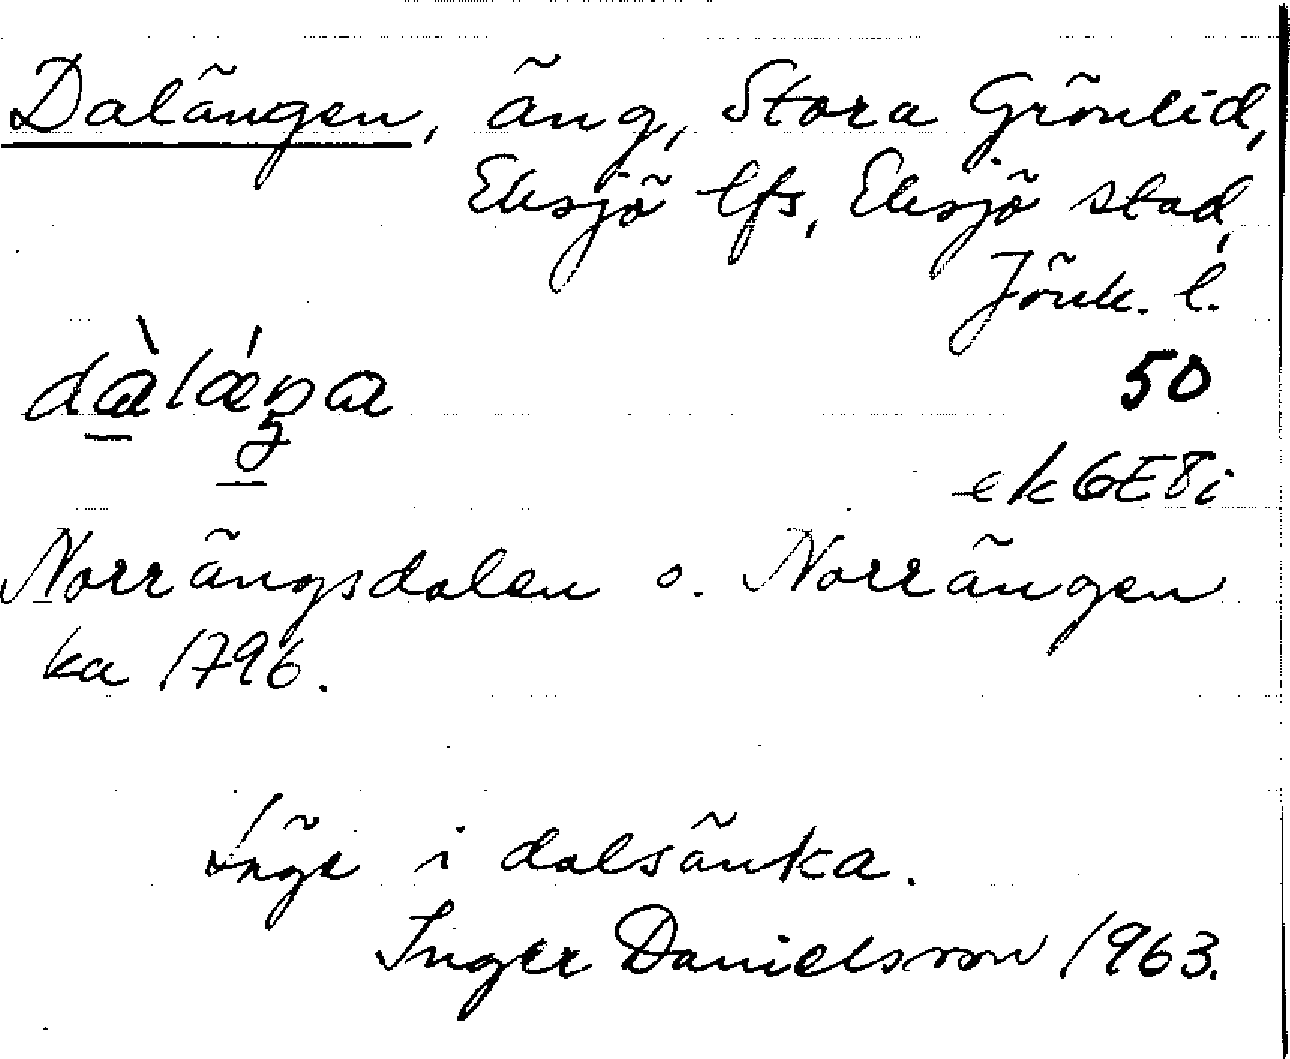 Dalängen, äng, Stora Grönlid,
Eksjö lfs, Eksjö stad,
Jönk. l.
50
ek 6E8i
Norrängsdalen o. Norrängen
ka 1796.
i dalsänka.
Inger Danielsson 1963.